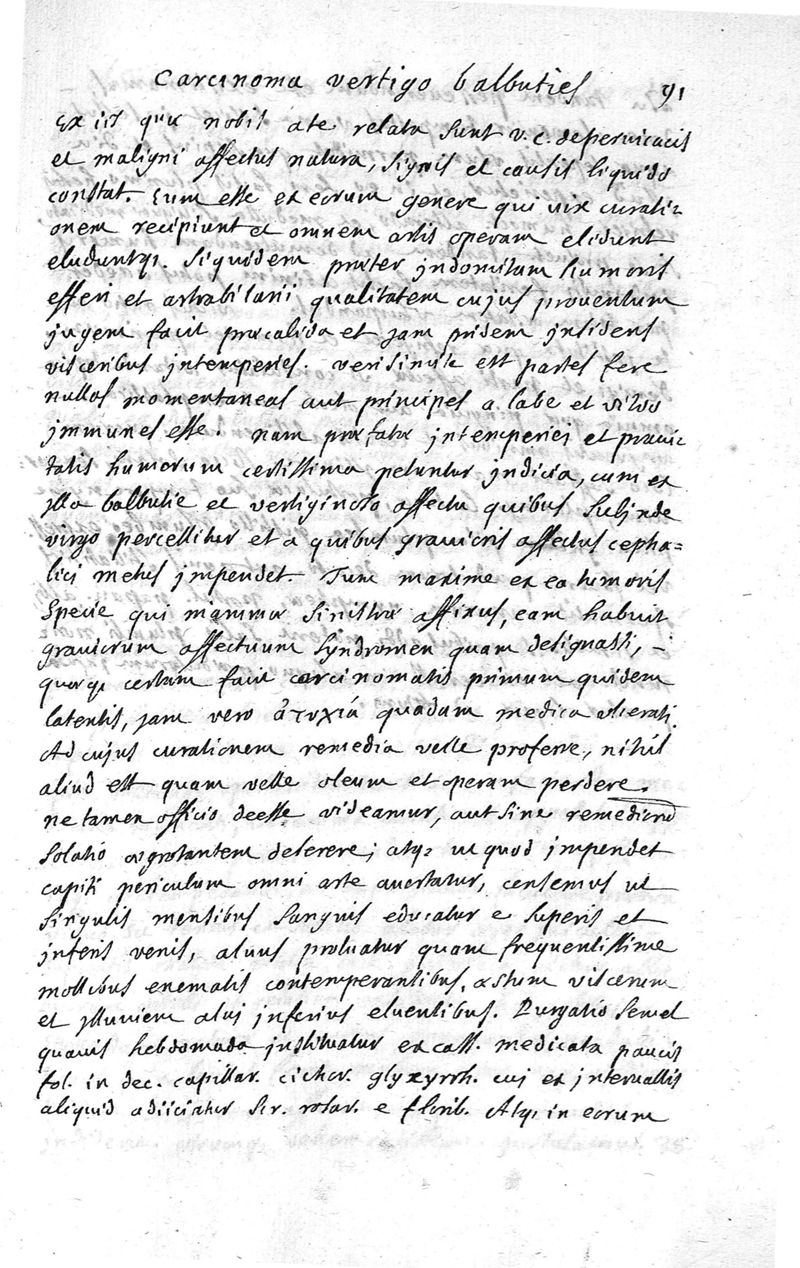 Carcinoma vertigo balbuties 91
Ex iis quæ nobis a te relata sunt v. c. de pervicacis
et maligni affectus natura, signis et causis liquido
constat. Eum esse ex eorum genere qui vix curati-
onem recipiunt et omnem artis operam elidunt
eluduntq;. Siquidem præter jndomitam humoris
efferi et atrabilarii qualitatem cujus proventum
jugem facit præcalida et jam pridem jnsidens
visceribus jntemperies. verisimile est partes fere
nullas momentaneas aut principes a labe et vitio
jmmunes esse. nam præfatæ jntemperiei et pravi-
tatis humorum certissima petuntur jndicia, cum ex
jlla balbutie et vertiginoso affectu quibus subjnde
virgo percellitur et a quibus gravioris affectus cepha=
lici metus jmpendet. Tum maxime ex ea tumoris
specie qui mammæ sinistræ affixus, eam habuit
graviorum affectuum syndromen quam designasti,
quæq; certam facit carcinomatis primum quidem
latentis, jam vero ἀτυχιά quadam medica ulcerati.
Ad cujus curationem remedia velle proferre, nihil
aliud est quam velle oleum et operam perdere.
ne tamen officio deesse videamur, aut sine remediorum
solatio ægrotantem deserere; atq; ut quod jmpendet
capiti periculum omni arte avertatur, censemus ut
singulis mensibus sanguis educatur e superis et
jnferis venis, alvus proluatur quam frequentissime
mollibus enematis contemperantibus, æstum viscerum
et jlluviem alvi jnferius eluentibus. Purgatio semel
quavis hebdomada jnstituatur ex cass. medicata paucis
fol. in dec. capillar. cichor. glyzyrrh. cuj ex jntervallis
aliquid adiiciatur sir. rosar. e florib. Atq; in eorum